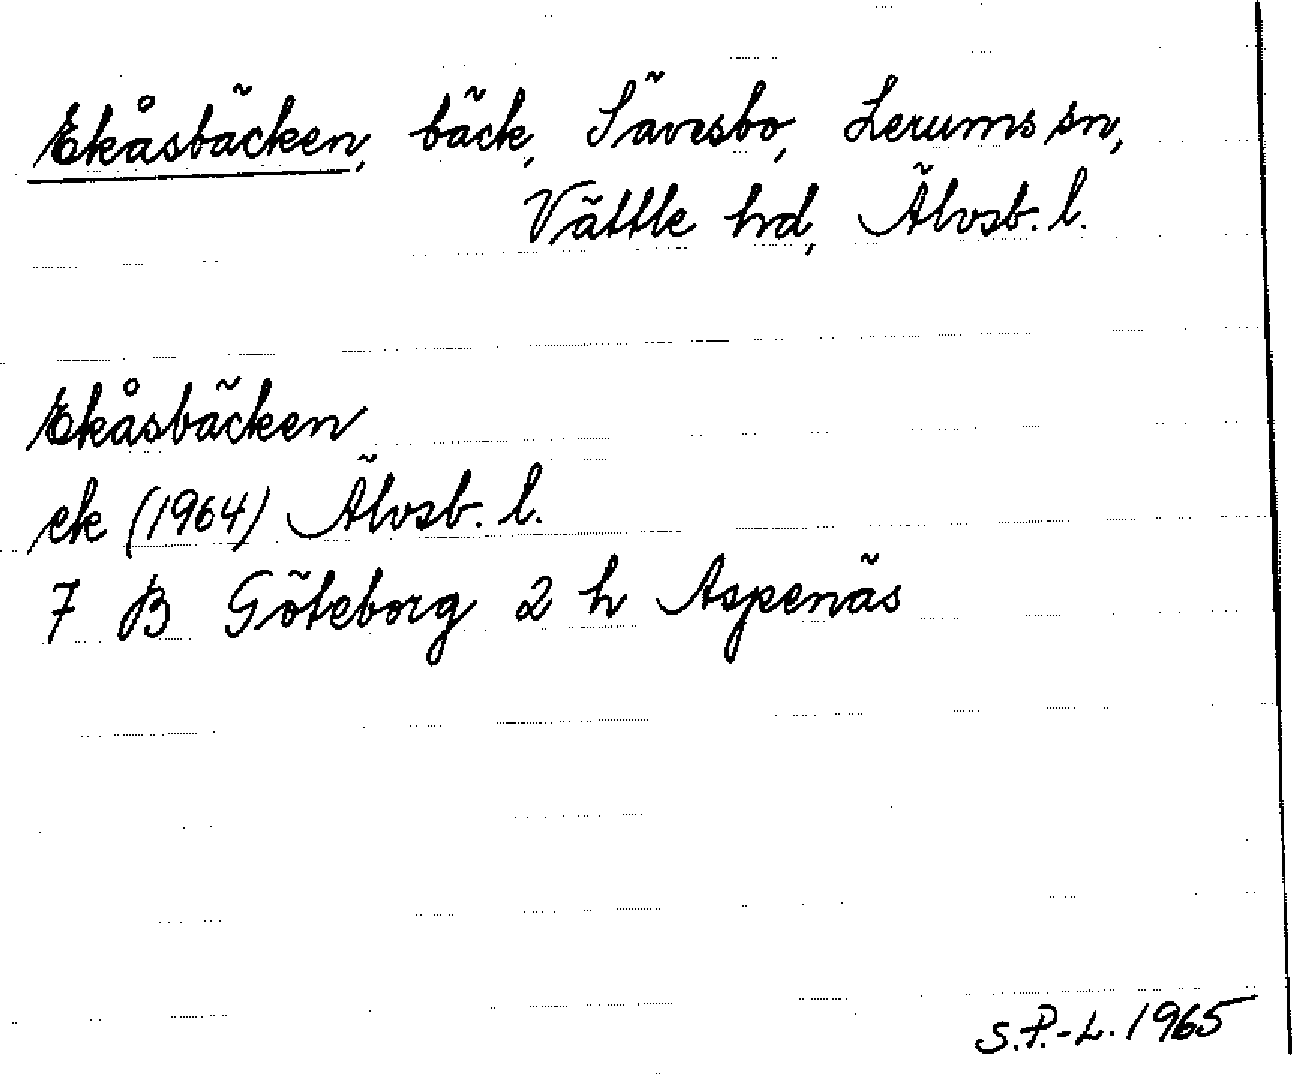 Ekåsbäcken, bäck, Sävesbo, Lerums sn,
Vättle hd, Älvsb. l.
Ekåsbäcken
ek (1964) Älvsb. l.
7 B Göteborg 2 h Aspenäs
S.P.-L. 1965